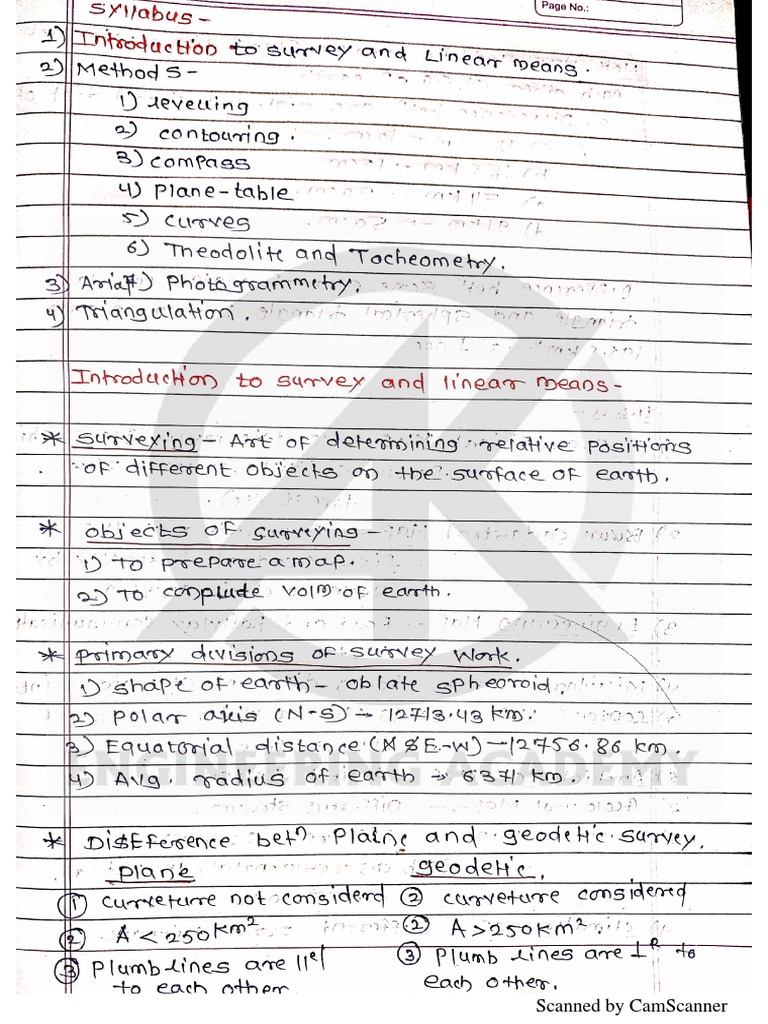 Page No.:
Syllabus -
1) Introduction to survey and Linear means.
2) Methods -
1) levelling
2) contouring.
3) compass
4) Plane-table
5) curves
6) Theodolite and Tocheometry.
3) Aria 7) Photogrammetry.
4) Triangulation.
Introduction to survey and linear means -
* surveying - Art of determining relative positions
of different objects on the surface of earth.
* objects of surveying -
1) to prepare a map.
2) To conplude volm of earth.
* primary divisions of survey work.
1) shape of earth - oblate spheoroid
2) Polar axis (N-S) - 12713.43 km.
3) Equatorial distance (E-W) - 12756.86 km.
4) Avg. radius of earth → 6371 km.
* Difference betn Plane and geodetic survey.
plane geodetic.
① curveture not considerd ② curveture considered
② A < 250 km² ② A > 250 km²
③ Plumb lines are llel ③ Plumb lines are ⊥r to
to each other each other.
ENGINEERING ACADEMY
Scanned by CamScanner